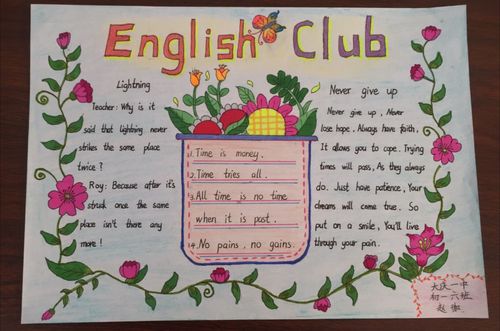 English Club
Lightning
Teacher: Why is it
said that lightning never
strikes the same place
twice?
Roy: Because after it's
struck once the same
place isn't there any
more!
1. Time is money.
2. Time tries all.
3. All time is no time
when it is past.
4. No pains, no gains.
Never give up
Never give up, Never
lose hope. Always have faith,
It allows you to cope. Trying
times will pass, As they always
do. Just have patience, Your
dreams will come true. So
put on a smile, You'll live
through your pain.
大庆一中
初一六班
赵